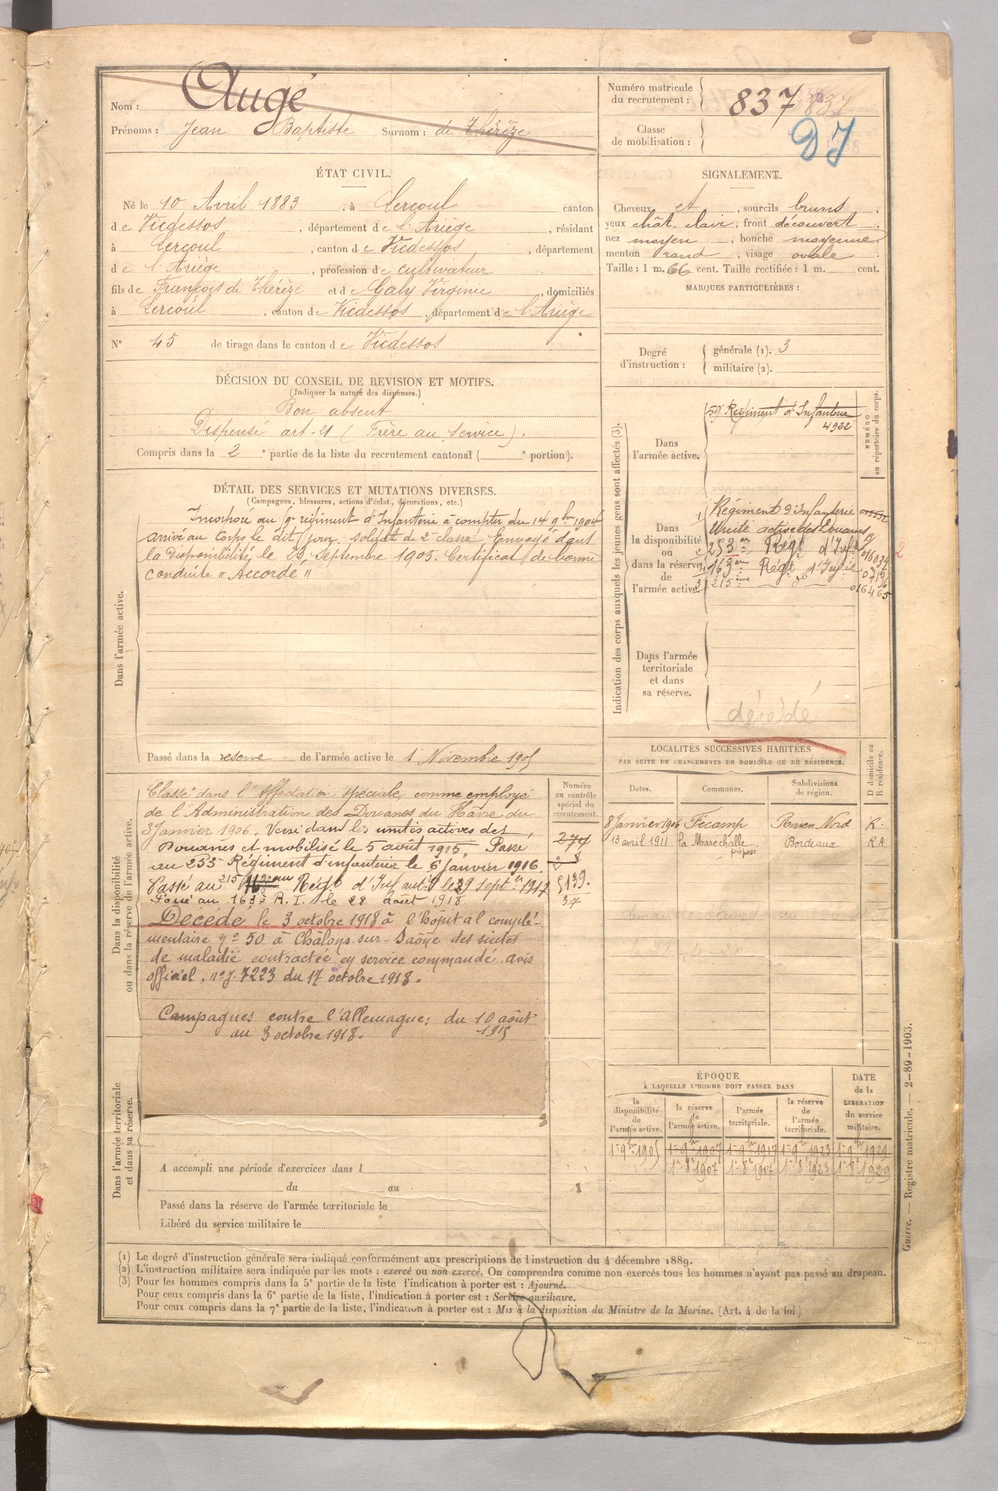 Nom : Augé
Prénoms : Jean Baptiste Surnom : de Thérèze
Numéro matricule du recrutement : 837
Classe de mobilisation :
DJ
ÉTAT CIVIL.
Né le 10 Avril 1883, à Lercoul canton
de Vicdessos, département de l'Ariège, résidant
à Lercoul, canton de Vicdessos, département
de l'Ariège, profession de cultivateur
fils de François de Thérèze et de Galy Virginie, domiciliés
à Lercoul, canton de Vicdessos, département de l'Ariège
N° 45 de tirage dans le canton de Vicdessos
SIGNALEMENT.
Cheveux et, sourcils bruns,
yeux chât. clair, front découvert,
nez moyen, bouche moyenne,
menton rond, visage ovale
Taille : 1 m. 66 cent. Taille rectifiée : 1 m. cent.
MARQUES PARTICULIÈRES :
Degré d'instruction : générale (1). 3
militaire (2).
DÉCISION DU CONSEIL DE REVISION ET MOTIFS.
(Indiquer la nature des dispenses.)
Bon absent
Dispensé art. 21 (Frère au Service).
Compris dans la 2e partie de la liste du recrutement cantonal ( e portion).
DÉTAIL DES SERVICES ET MUTATIONS DIVERSES.
(Campagnes, blessures, actions d'éclat, décorations, etc.)
Dans l'armée active.
Incorporé au régiment d'Infanterie à compter du 14 9bre 1904
arrivé au Corps le dit jour, soldat de 2e classe. Envoyé dans
la disponibilité le 23 Septembre 1905. Certificat de bonne
conduite "Accordé"
Passé dans la réserve de l'armée active le 1 Novembre 1905
Indication des corps auxquels les jeunes gens sont affectés (3).
NUMÉRO au répertoire du corps.
Dans l'armée active.
59e Régiment d'Infanterie
4932
Dans la disponibilité ou dans la réserve de l'armée active.
Régiment d'Infanterie
Unité active des Douanes
253me Régt d'Infie
163me Régt d'Infie
215ème do
016465
Dans l'armée territoriale et dans sa réserve.
décédé
LOCALITÉS SUCCESSIVES HABITÉES
PAR SUITE DE CHANGEMENTS DE DOMICILE OU DE RÉSIDENCE.
Dates. Communes. Subdivisions de région. D domicile ou R résidence.
8 Janvier 1906 Fécamp Rouen Nord R.
13 avril 1911 la Maréchalle Bordeaux R.A.
préposé
Dans la disponibilité ou dans la réserve de l'armée active.
Numéro au contrôle spécial du recrutement.
Classé dans l'affectation spéciale comme employé
de l'Administration des Douanes du Hâvre du
8 Janvier 1906. Versé dans les unités actives des
Douanes et mobilisé le 5 août 1915. Passé
au 253 Régiment d'infanterie le 6 janvier 1916.
Passé au 215 Régt d'Infanterie le 29 septbre 1917
Passé au 163e R.I. le 28 août 1918
274
5139.
37
Décédé le 3 octobre 1918 à l'hopital complé-
mentaire no 50 à Châlons-sur-Saône des suites
de maladie contractée en service commandé. avis
officiel, no J. 7223 du 17 octobre 1918.
Campagnes contre l'Allemagne; du 10 août
1915
au 3 octobre 1918.
ÉPOQUE
À LAQUELLE L'HOMME DOIT PASSER DANS
la disponibilité de l'armée active. la réserve de l'armée active. l'armée territoriale. la réserve de l'armée territoriale.
DATE de la LIBÉRATION du service militaire.
1-9bre 1905 1-9bre 1907 1-9bre 1917 1-9bre 1923 1-9bre 1929
1-8bre 1907 1-8bre 1917 1-8bre 1923 1-8bre 1929
Dans l'armée territoriale et dans sa réserve.
A accompli une période d'exercices dans l
du au
Passé dans la réserve de l'armée territoriale le
Libéré du service militaire le
(1) Le degré d'instruction générale sera indiqué conformément aux prescriptions de l'instruction du 4 décembre 1889.
(2) L'instruction militaire sera indiquée par les mots : exercé ou non exercé. On comprendra comme non exercés tous les hommes n'ayant pas passé au drapeau.
(3) Pour les hommes compris dans la 5e partie de la liste l'indication à porter est : Ajourné.
Pour ceux compris dans la 6e partie de la liste, l'indication à porter est : Service auxiliaire.
Pour ceux compris dans la 7e partie de la liste, l'indication à porter est : Mis à la disposition du Ministre de la Marine. (Art. 4 de la loi)
Guerre. — Registre matricule. — 2-89-1903.